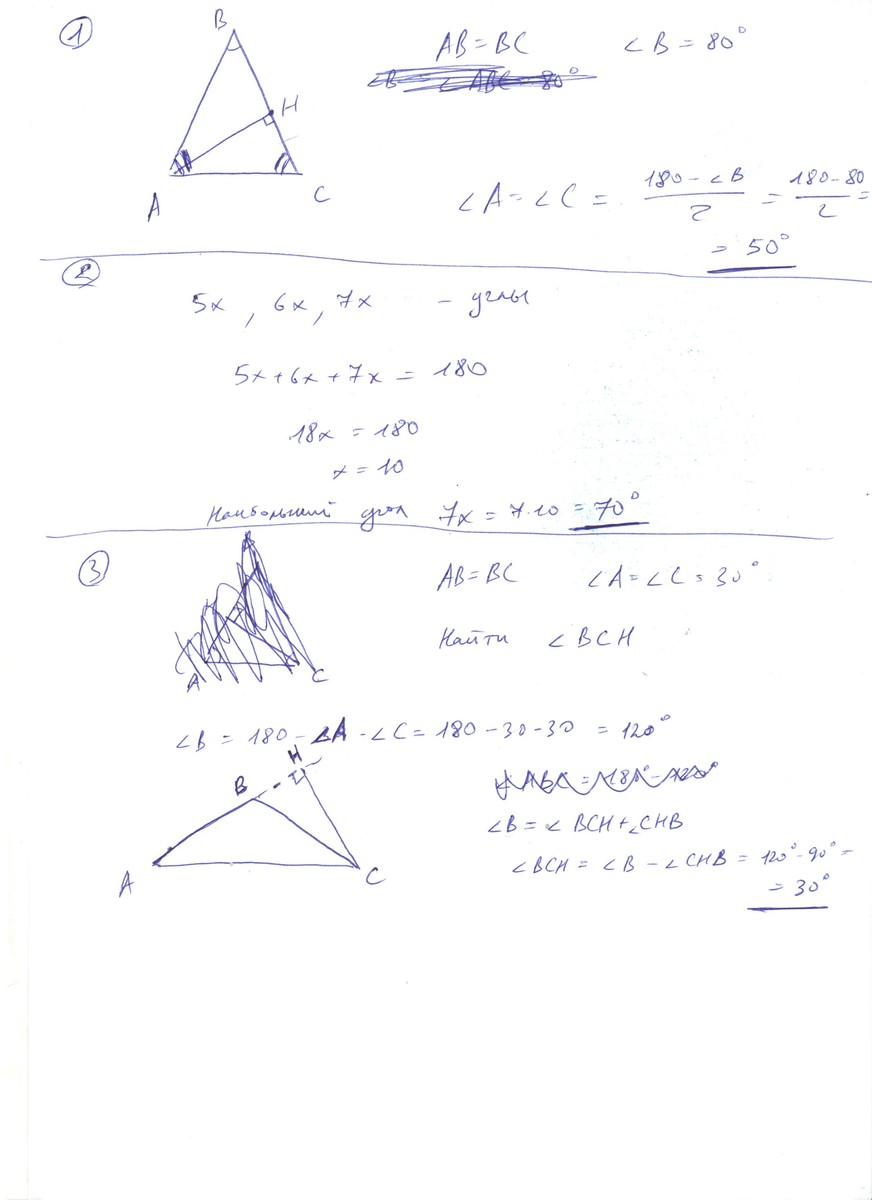 1
B
AB = BC ∠B = 80°
∠B = ∠ABC = 80°
H
A C
∠A = ∠C = (180 - ∠B)/2 = (180-80)/2 =
= 50°
2
5x , 6x , 7x - углы
5x + 6x + 7x = 180
18x = 180
x = 10
Наибольший угол 7x = 7·10 = 70°
3
AB = BC ∠A = ∠C = 30°
Найти ∠BCH
A C
∠B = 180 - ∠A - ∠C = 180 - 30 - 30 = 120°
H
B
∠B = ∠BCH + ∠CHB
A C
∠BCH = ∠B - ∠CHB = 120° - 90° =
= 30°